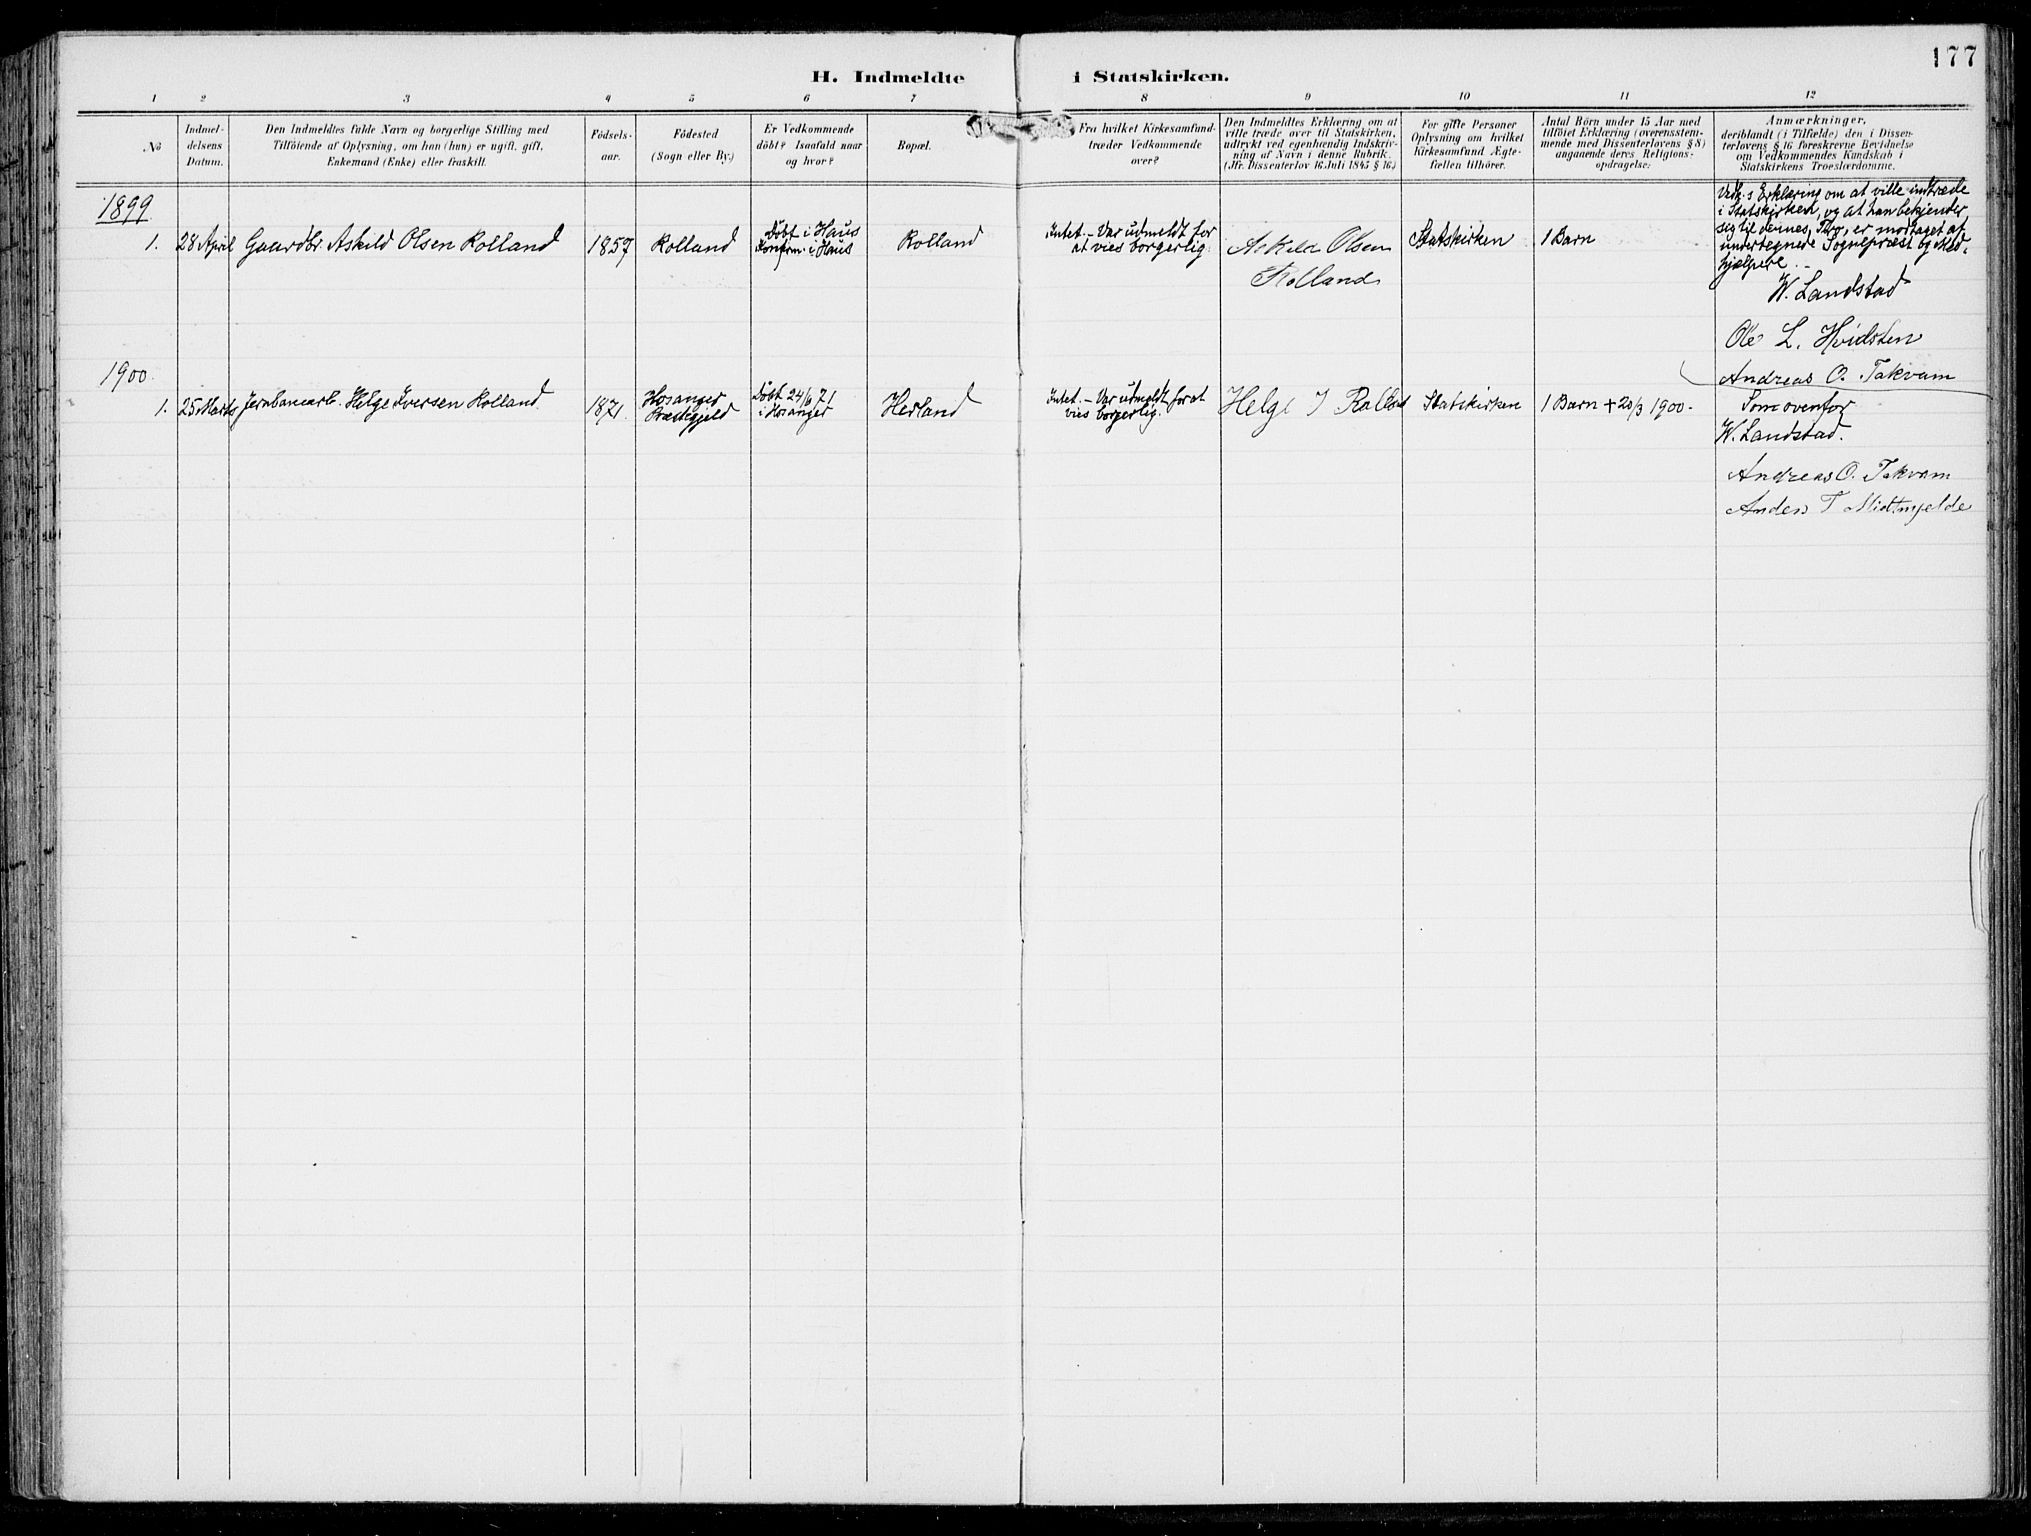 177
H. Indmeldte i Statskirken.
1 2 3 4 5 6 7 8 9 10 11 12
No
Indmel-
delsens
Datum.
Den Indmeldtes fulde Navn og borgerlige Stilling med
Tilföiende af Oplysning, om han (hun) er ugift, gift,
Enkemand (Enke) eller fraskilt.
Födsels-
aar.
Födested
(Sogn eller By.)
Er Vedkommende
döbt? Isaafald naar
og hvor?
Bopæl.
Fra hvilket Kirkesamfund
træder Vedkommende
over?
Den Indmeldtes Erklæring om at
ville træde over til Statskirken,
udtrykt ved egenhændig Indskriv-
ning af Navn i denne Rubrik.
(Jfr. Dissenterlov 16 Juli 1845 § 16.)
For gifte Personer
Oplysning om hvilket
Kirkesamfund Ægte-
fællen tilhörer.
Antal Börn under 15 Aar med
tilföiet Erklæring (overensstem-
mende med Dissenterlovens § 8)
angaaende deres Religions-
opdragelse.
Anmærkninger,
deriblandt (i Tilfælde) den i Dissen-
terlovens § 16 foreskrevne Bevidnelse
om Vedkommendes Kundskab i
Statskirkens Troeslærdomme.
1899
1.
28 April
Gaardbr. Askild Olsen Rolland
1857
Rolland
Döbt i Haus
Konfirm. i Haus
Rolland
Intet. - Var udmeldt for
at vies borgerlig.
Askild Olsen
Rolland
Statskirken
1 Barn
Vedk.s Erklæring om at ville indtræde
i Statskirken, og at han bekjender
sig til dennes Tro, er mottaget af
undertegnede Sogneprest og Med-
hjælpere. -
W. Landstad
Ole L. Hvidsten
Andreas O. Takvam
1900.
1.
25 Marts
Jernbanearb. Helge Iversen Rolland.
1871.
Hosanger
Præstegjeld
Döbt 24/6 71
i Hosanger
Herland
Intet. - Var udmeldt for at
vies borgerlig.
Helge I Rolland
Statskirken
1 Barn + 20/3 1900.
Som ovenfor
W. Landstad.
Andreas O. Takvam
Anders T Midtmjelde